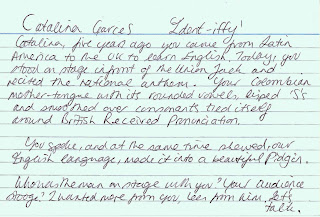 Catalina Garces 'Ident-iffy'
Catalina, five years ago you came from Latin
America to the UK to learn English. Today, you
stood on stage in front of the Union Jack and
recited the national anthem. Your Colombian
mother-tongue with its rounded vowels, lisped 'S's
and smoothed over consonants tied itself
around British Received Pronunciation.
You spoke, and at the same time slowed, our
English language, made it into a beautiful Pidgin.
Who was the man on stage with you? Your audience
stooge? I wanted more from you, less from him. Let's
talk.